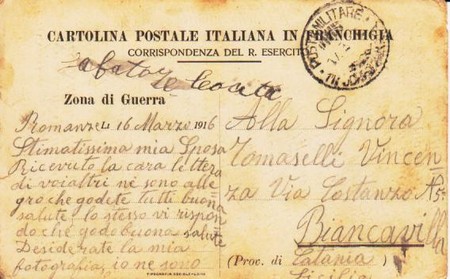 CARTOLINA POSTALE ITALIANA IN FRANCHIGIA
CORRISPONDENZA DEL R. ESERCITO
POSTA MILITARE
Zona di Guerra
Romanzel 16 Marzo 1916
Stimatissima mia Sposa
Ricevuto la cara lettera
di voialtri ne sono alle
gro che godete tutti buona
salute lo stesso vi rispon
do che godo buona salute
Desiderate la mia
fotografia, io ne sono
Alla Signora
Tomaselli Vincen
za Via Costanzo
Biancavilla
(Prov. di Catania)
Sicilia